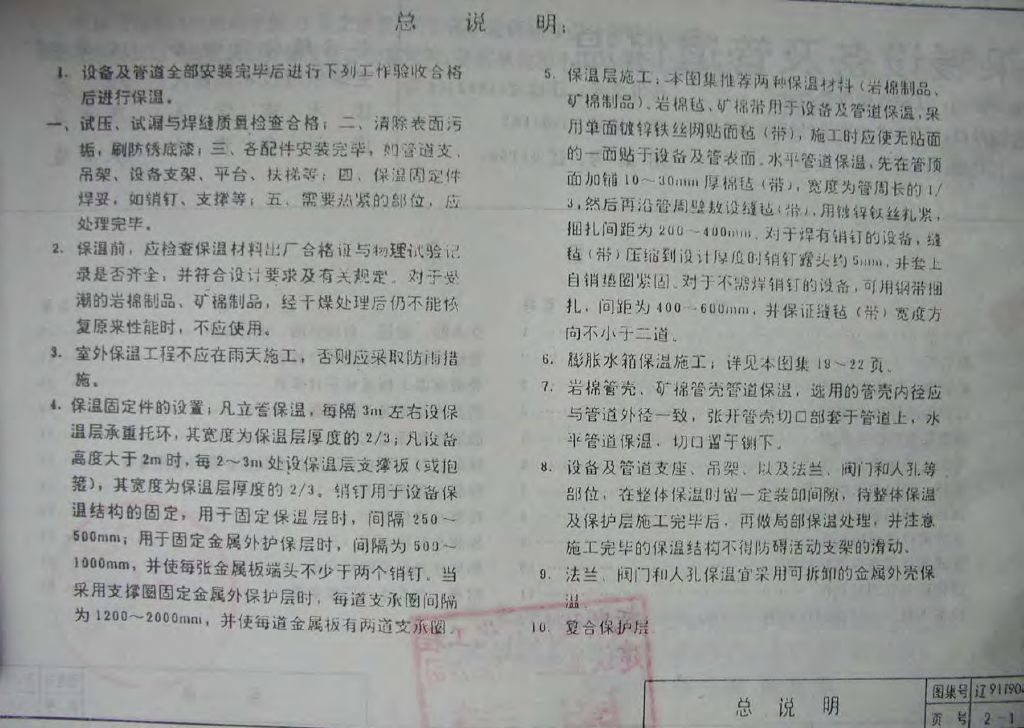 总 说 明:
1. 设备及管道全部安装完毕后进行下列工作验收合格
后进行保温。
一、试压、试漏与焊缝质量检查合格；二、清除表面污
垢，刷防锈底漆；三、各配件安装完毕，如管道支、
吊架、设备支架、平台、扶梯等；四、保温固定件
焊妥，如销钉、支撑等；五、需要热紧的部位，应
处理完毕。
2. 保温前，应检查保温材料出厂合格证与物理试验记
录是否齐全，并符合设计要求及有关规定。对于受
潮的岩棉制品、矿棉制品，经干燥处理后仍不能恢
复原来性能时，不应使用。
3. 室外保温工程不应在雨天施工，否则应采取防雨措
施。
4. 保温固定件的设置；凡立管保温，每隔3m左右设保
温层承重托环，其宽度为保温层厚度的2/3；凡设备
高度大于2m时，每2～3m处设保温层支撑板（或抱
箍），其宽度为保温层厚度的2/3。销钉用于设备保
温结构的固定，用于固定保温层时，间隔250～
500mm；用于固定金属外护保层时，间隔为500～
1000mm，并使每张金属板端头不少于两个销钉。当
采用支撑圈固定金属外保护层时，每道支承圈间隔
为1200～2000mm，并使每道金属板有两道支承圈。
5. 保温层施工；本图集推荐两种保温材料（岩棉制品、
矿棉制品）、岩棉毡、矿棉带用于设备及管道保温，采
用单面镀锌铁丝网贴面毡（带），施工时应使无贴面
的一面贴于设备及管表面。水平管道保温，先在管顶
面加铺10～30mm厚棉毡（带），宽度为管周长的1/
3，然后再沿管周壁敷设缝毡（带），用镀锌铁丝扎紧，
捆扎间距为200～400mm。对于焊有销钉的设备，缝
毡（带）压缩到设计厚度时销钉露头约5mm，并套上
自销垫圈紧固。对于不需焊销钉的设备，可用钢带捆
扎，间距为400～600mm，并保证缝毡（带）宽度方
向不小于二道。
6. 膨胀水箱保温施工；详见本图集19～22页。
7. 岩棉管壳、矿棉管壳管道保温，选用的管壳内径应
与管道外径一致，张开管壳切口部套于管道上，水
平管道保温，切口置于侧下。
8. 设备及管道支座、吊架、以及法兰、阀门和人孔等
部位，在整体保温时留一定装卸间隙，待整体保温
及保护层施工完毕后，再做局部保温处理，并注意
施工完毕的保温结构不得防碍活动支架的滑动。
9. 法兰、阀门和人孔保温宜采用可拆卸的金属外壳保
温。
10. 复合保护层
总 说 明
图集号 辽91T904
页 号 2-1